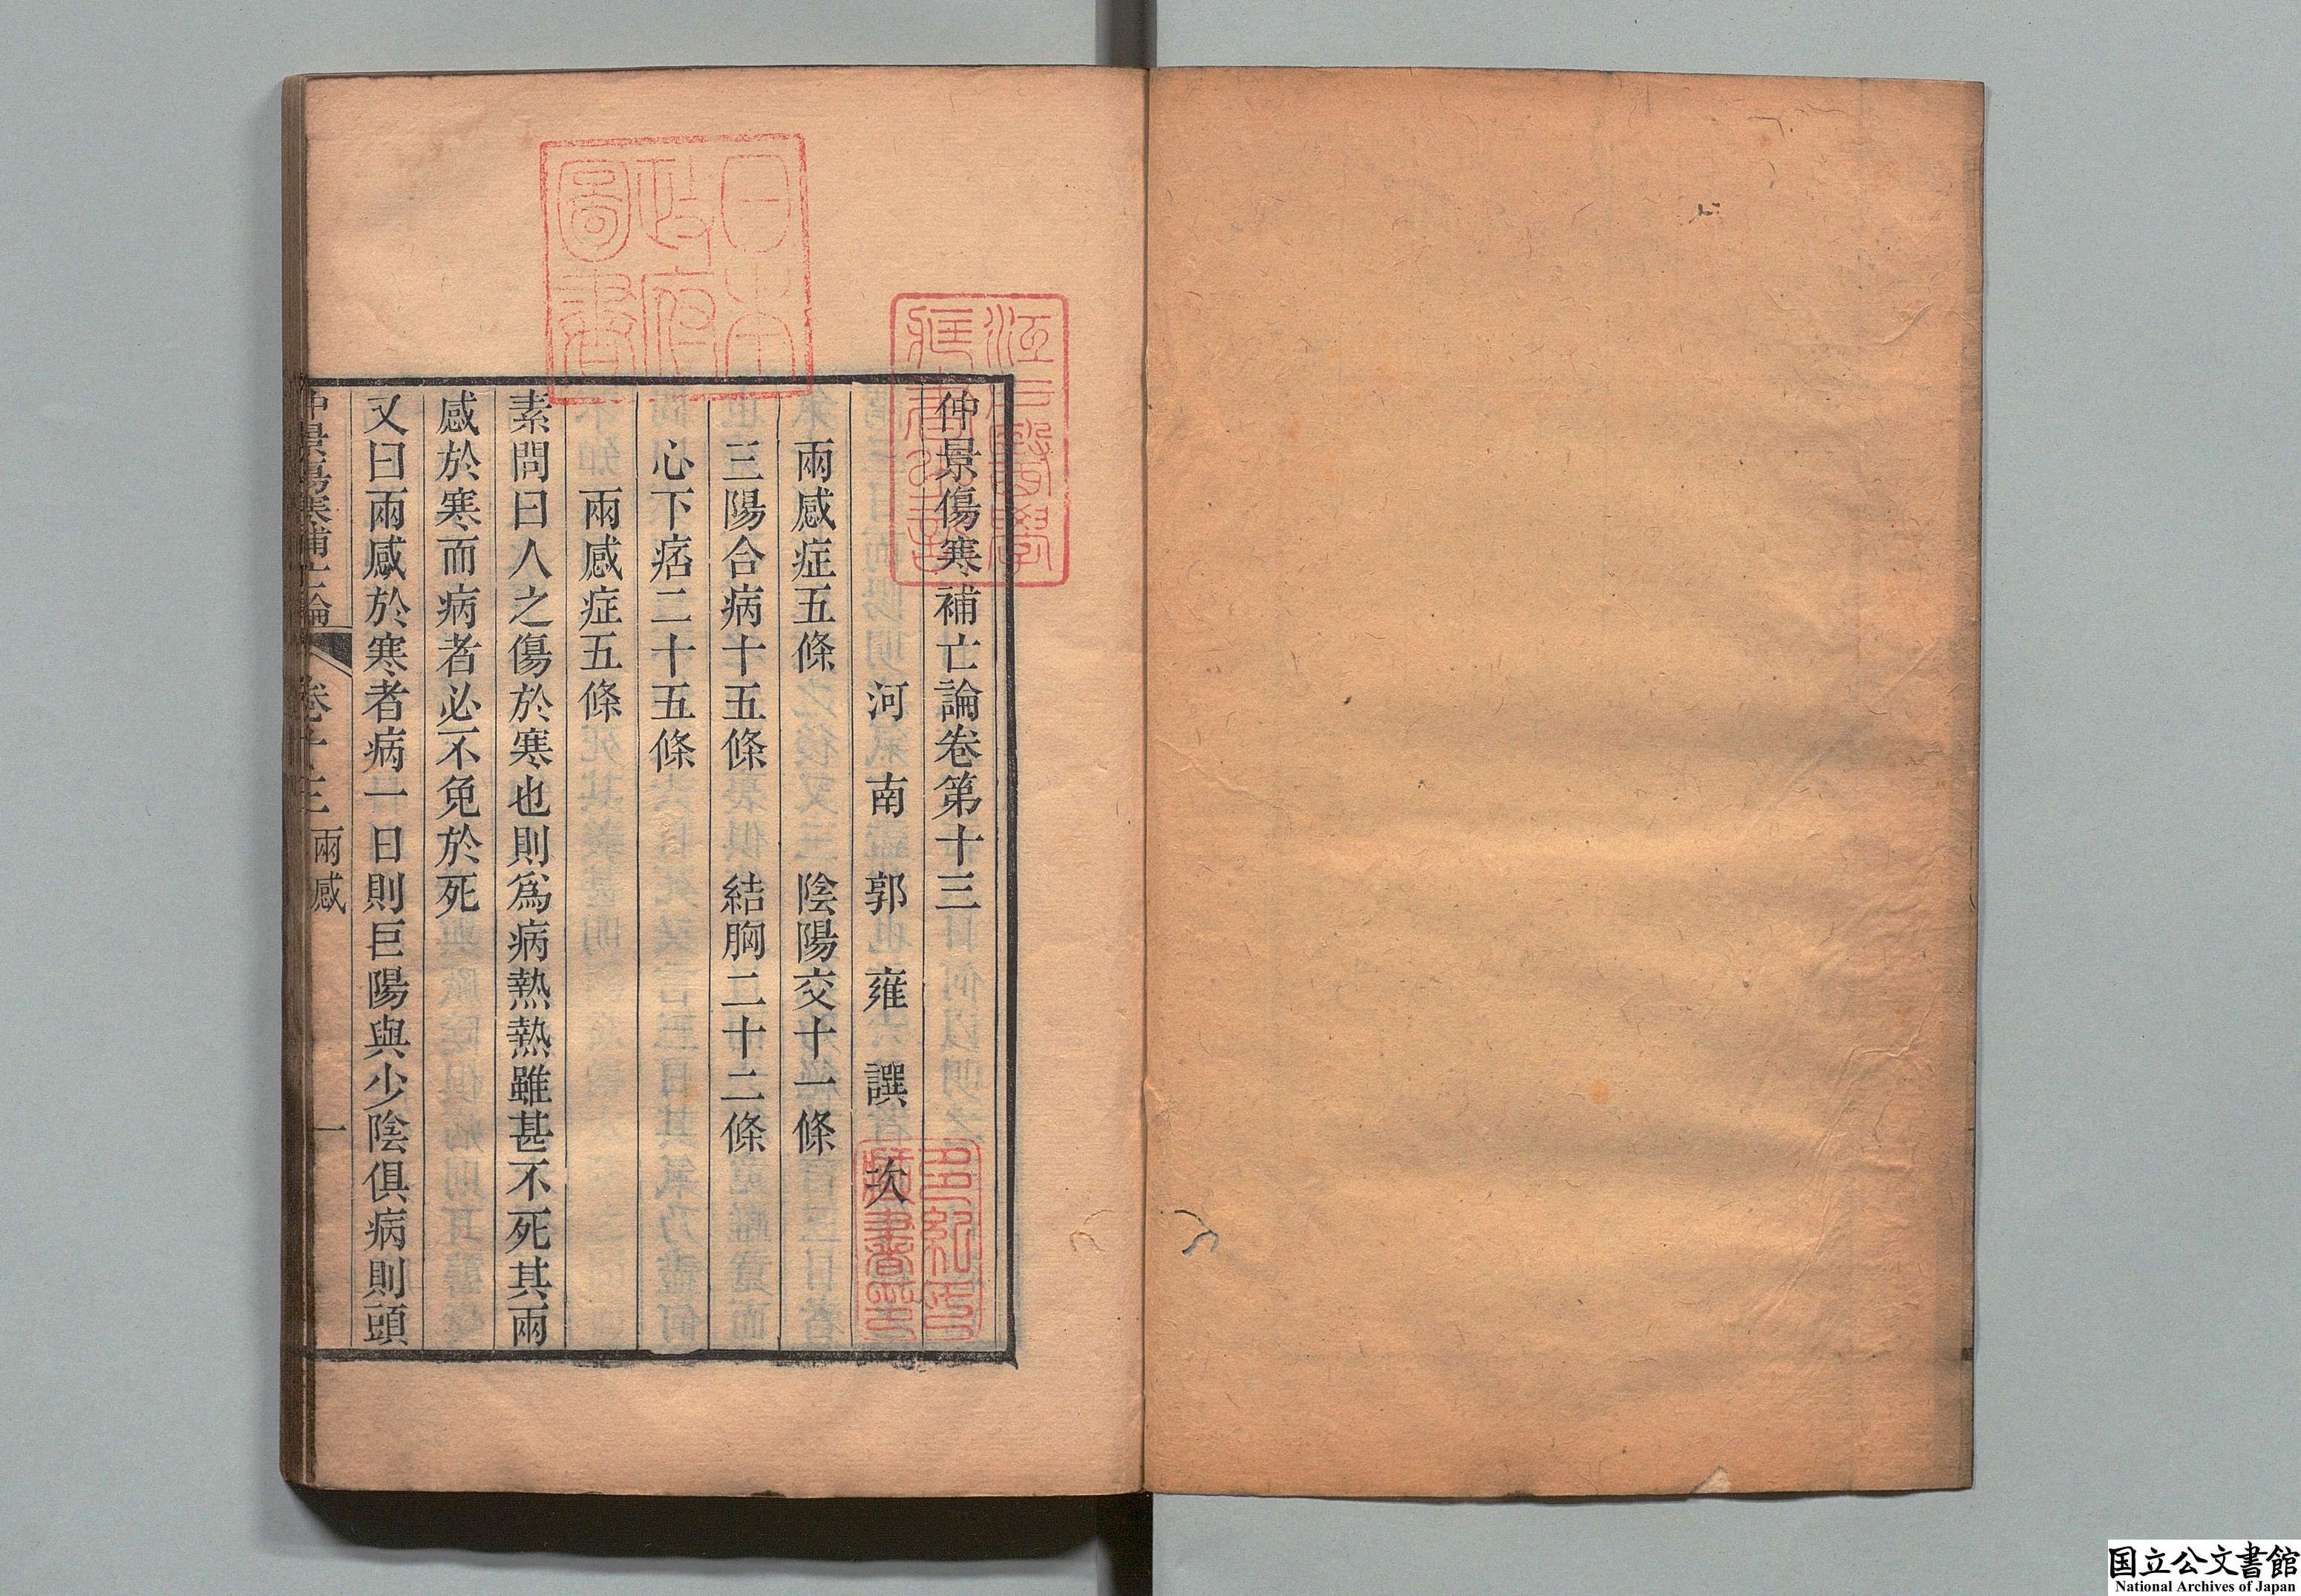 仲景傷寒補亡論卷第十三
河南郭雍譔次
兩感症五條 陰陽交十一條
三陽合病十五條 結胸二十二條
心下痞二十五條
兩感症五條
素問曰人之傷於寒也則爲病熱熱雖甚不死其兩
感於寒而病者必不免於死
又曰兩感於寒者病一日則巨陽與少陰俱病則頭
仲景傷寒補亡論 卷十三 兩感 一
日本政府圖書
江戶醫學藏書之記
多紀氏藏書印
国立公文書館
National Archives of Japan